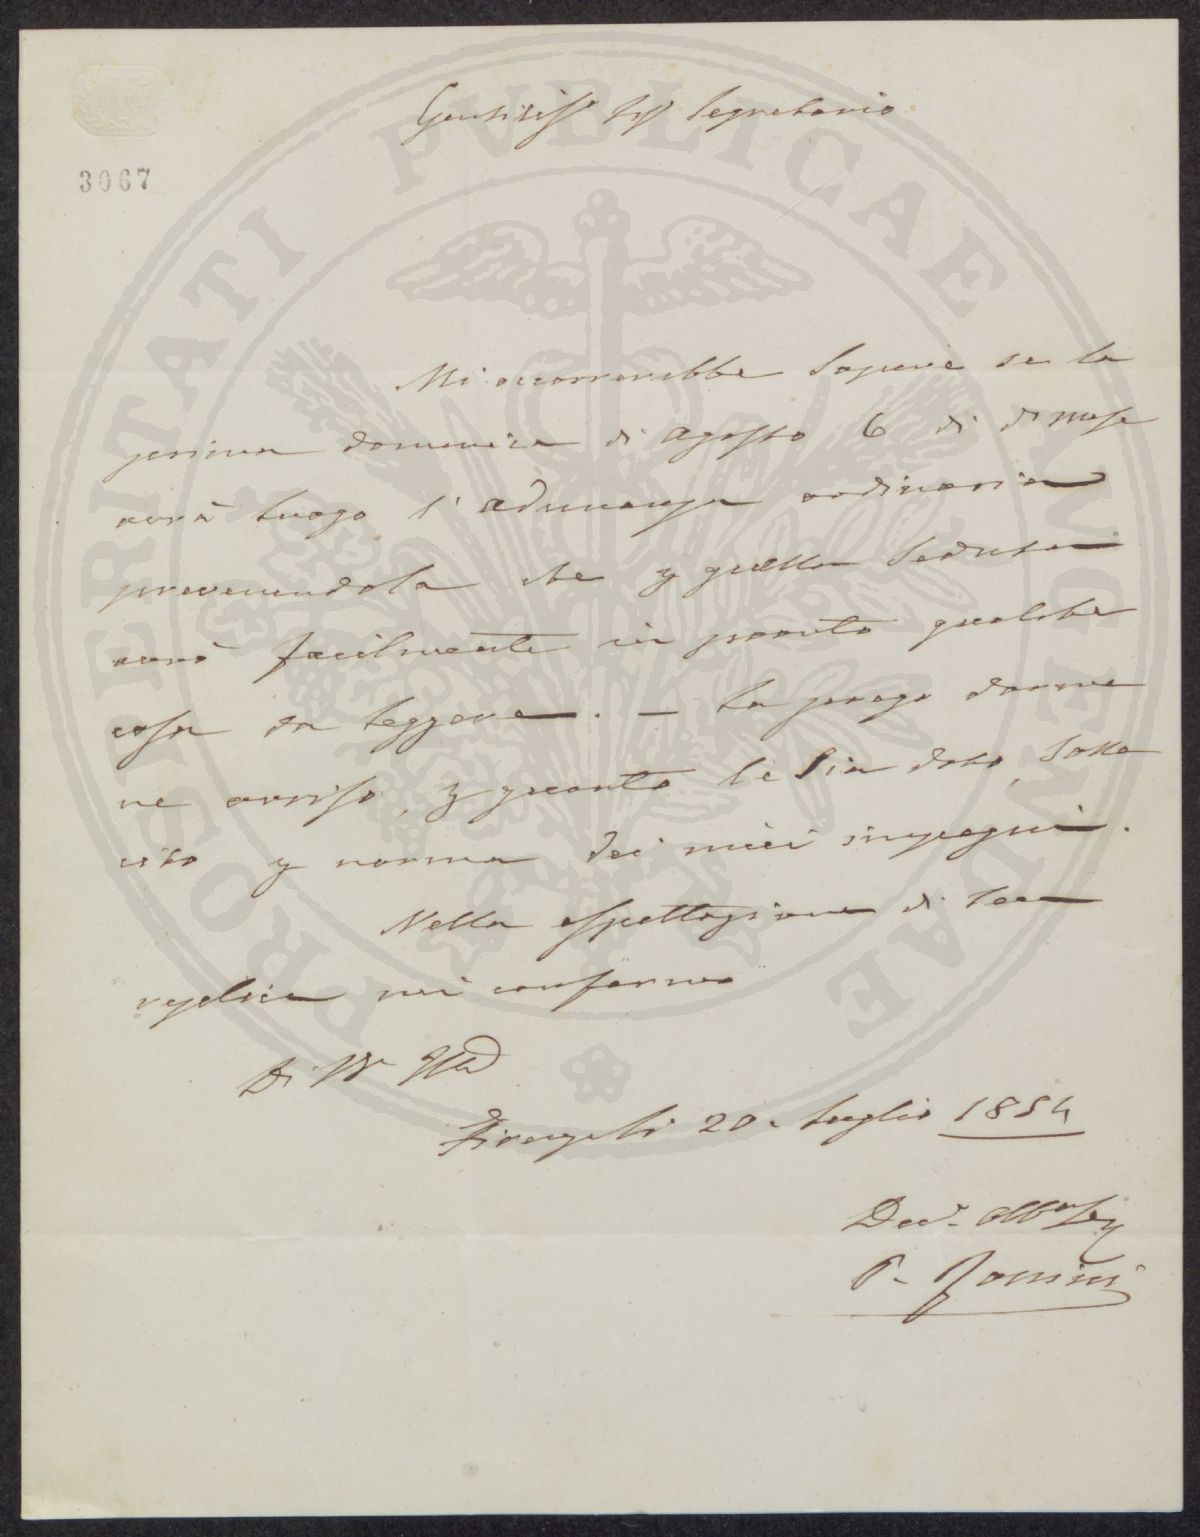 3067
Gentiliss° Sigr Segretario
Mi occorrerebbe sapere se la
prima domenica di Agosto 6 di d° mese
avrà luogo l'adunanza ordinaria
prevenendola che p quella Seduta
avrò facilmente in pronto qualche
cosa da leggere. — La prego darme
ne avviso, p quanto le sia dato, solle
cito p norma dei miei impegni.
Nella aspettazione di sua
replica mi confermo
Di
20. Luglio 1854
Dev°
P.
PROSPERITATI PUBLICAE AUGENDAE